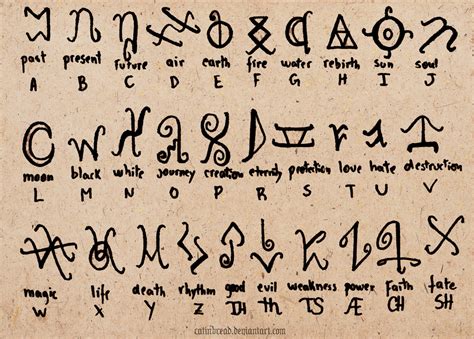 past present future air earth fire water rebirth sun soul
A B C D E F G H I J
moon black white journey creation eternity protection love hate destruction
L M N O P R S T U V
magic life death rhythm good evil weakness power Faith fate
W Y Z TH TS Æ CH SH
catinbread.deviantart.com